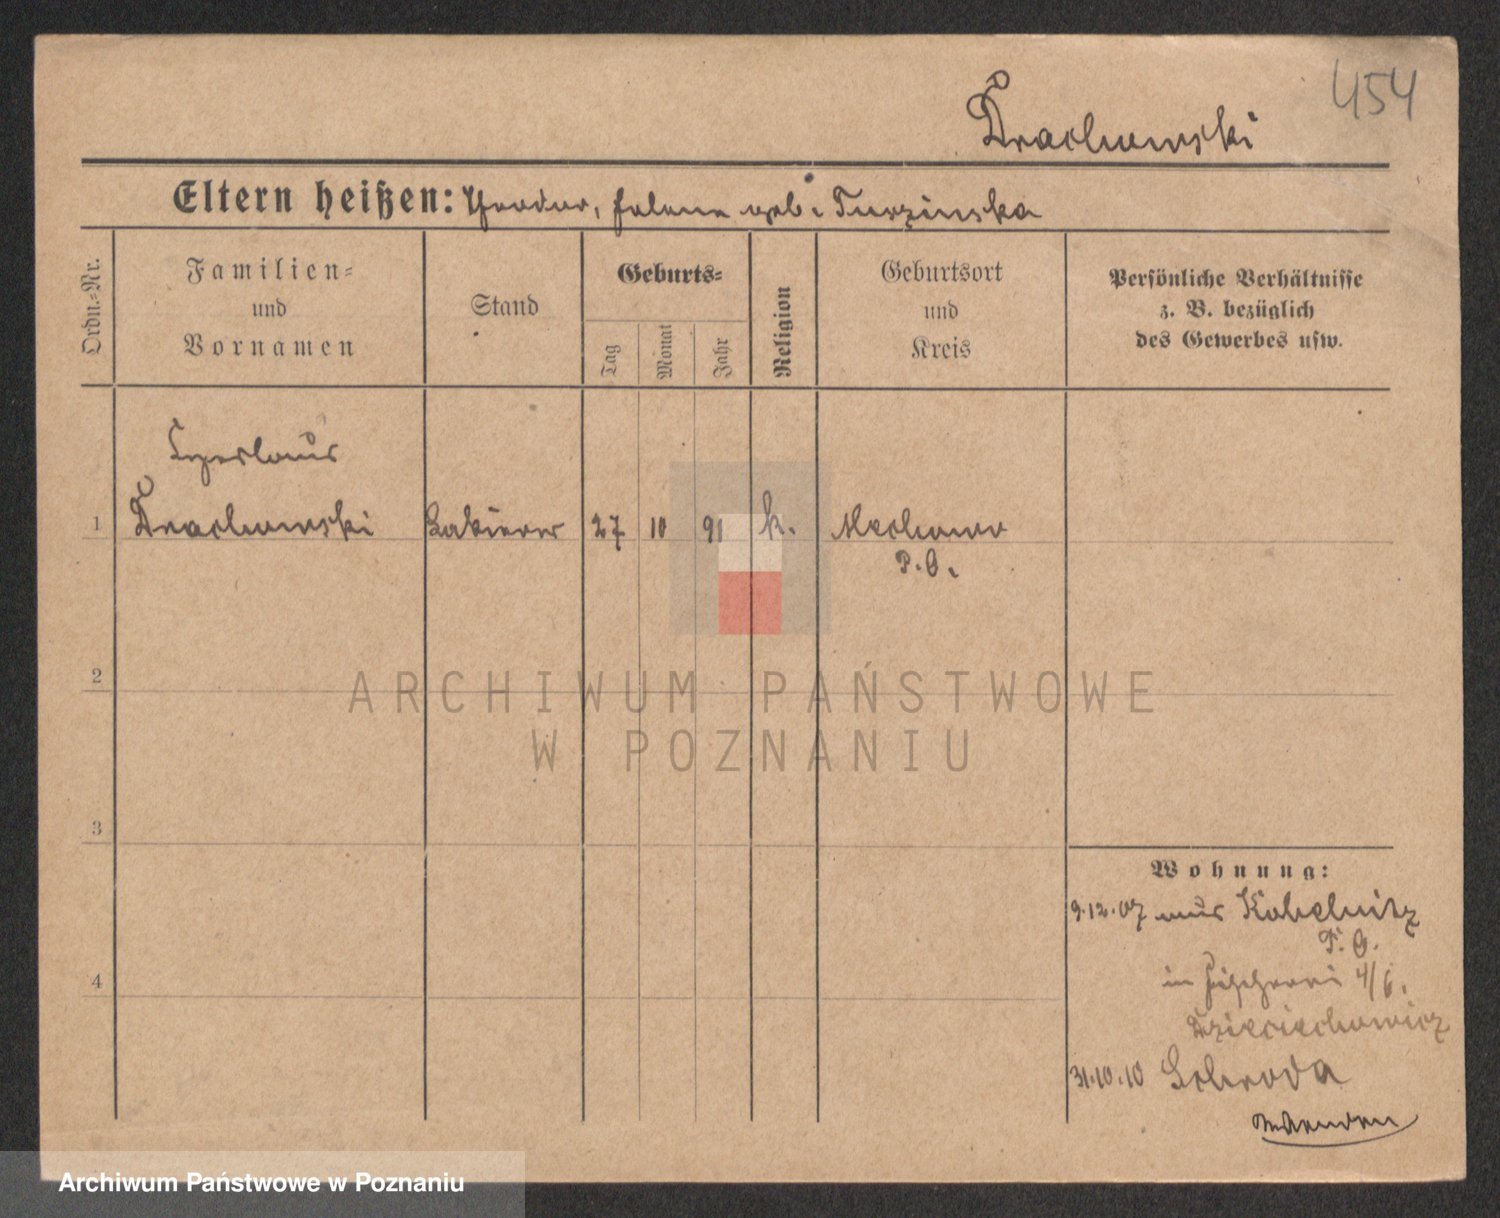 454
Drachowski
Eltern heißen: Theodor, Helene geb. Turzinska
Ordn.-Nr.
Familien-
und
Vornamen
Stand
Geburts-
Tag
Monat
Jahr
Religion
Geburtsort
und
Kreis
Persönliche Verhältnisse
z. B. bezüglich
des Gewerbes usw.
Czeslaus
1 Drachowski Lakierer 27 10 91 k. Mechowo
P. O.
2
ARCHIWUM PAŃSTWOWE
W POZNANIU
3
Wohnung:
9.12.07 aus Kobelnitz
P. O.
4
in Fischerei 4/6.
Dzieciechowicz
31.10.10 Schroda
Archiwum Państwowe w Poznaniu